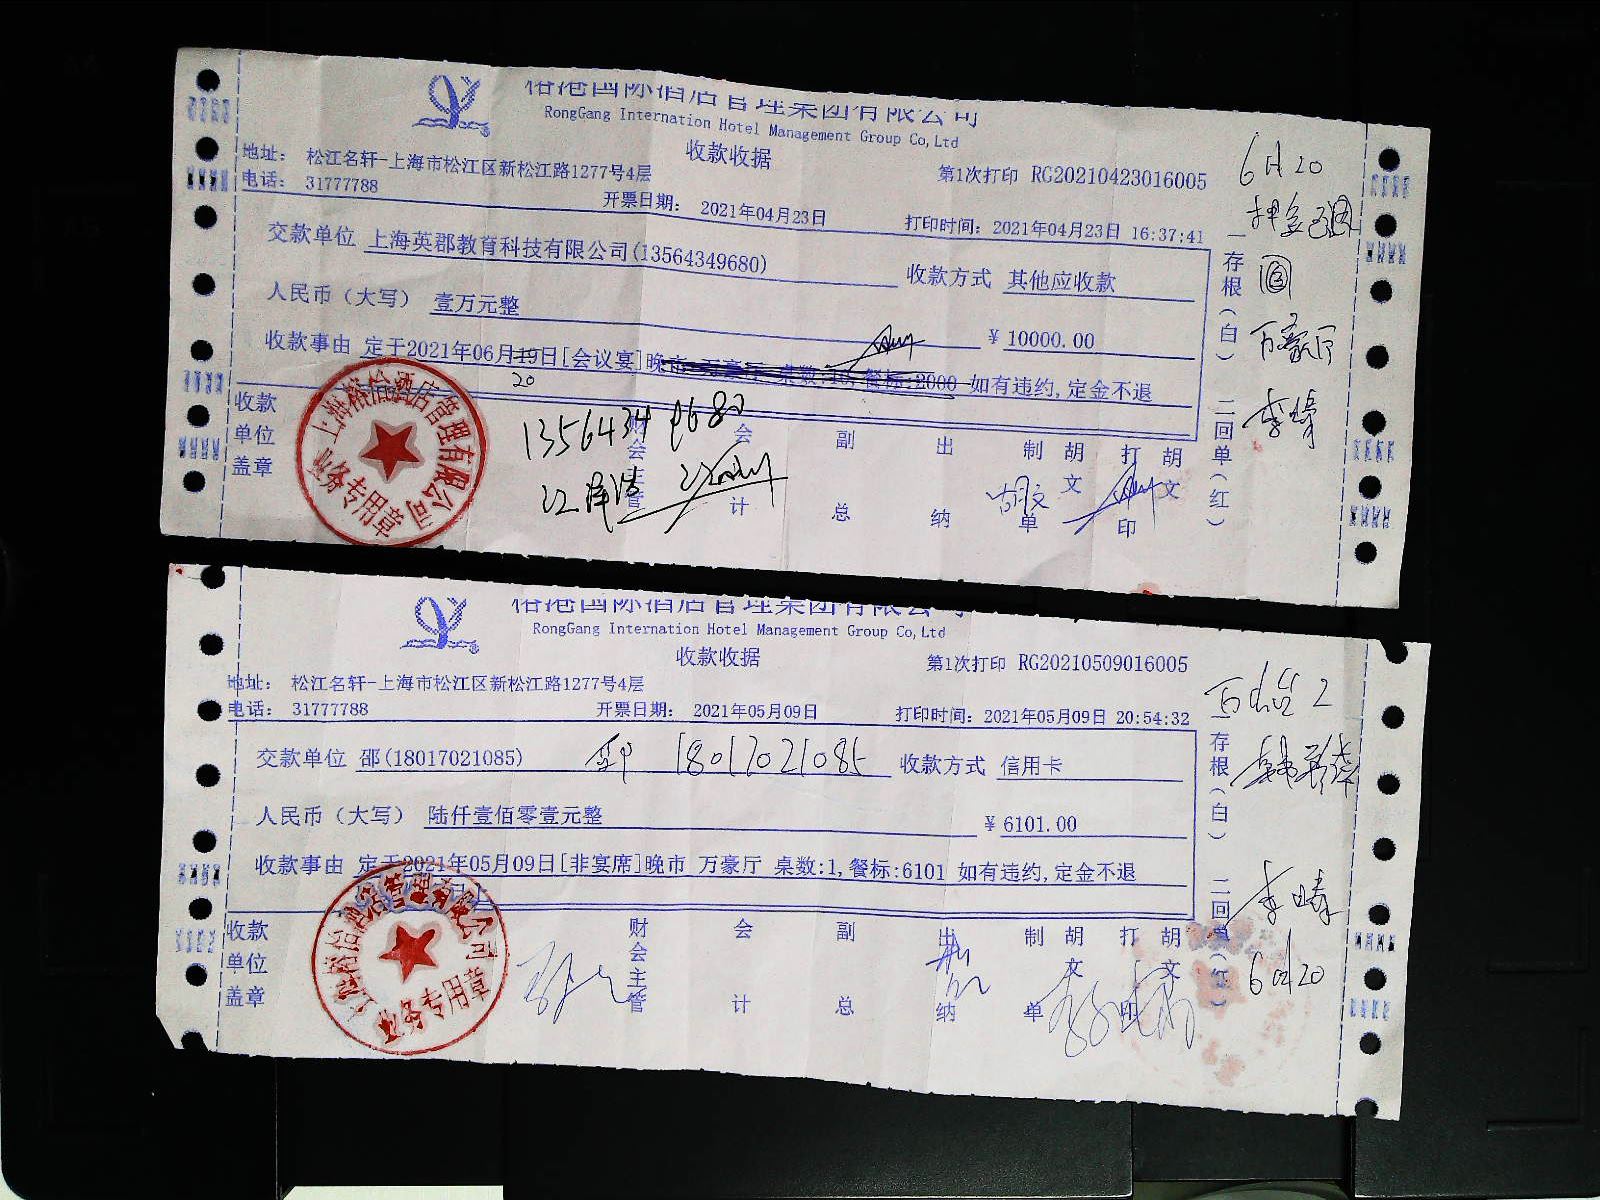 榕港国际酒店管理集团有限公司
RongGang Internation Hotel Management Group Co,Ltd
收款收据
第1次打印 RG20210423016005
地址： 松江名轩-上海市松江区新松江路1277号4层
电话： 31777788
开票日期： 2021年04月23日
打印时间：2021年04月23日 16:37:41
交款单位 上海英郡教育科技有限公司(13564349680)
收款方式 其他应收款
人民币（大写） 壹万元整
￥10000.00
收款事由 定于2021年06月19日[会议宴]晚市 万豪厅 桌数:10,餐标:2000 如有违约,定金不退
20
收款单位盖章
13564349680
财会主管 会计 副总 出纳 制单 胡文 打印 胡文
胡文
一存根（白） 二回单（红）
6月20
万豪厅
业务专用章
榕港国际酒店管理集团有限公司
RongGang Internation Hotel Management Group Co,Ltd
收款收据
第1次打印 RG20210509016005
地址： 松江名轩-上海市松江区新松江路1277号4层
电话： 31777788
开票日期： 2021年05月09日
打印时间：2021年05月09日 20:54:32
交款单位 邵(18017021085)
18017021085
收款方式 信用卡
人民币（大写） 陆仟壹佰零壹元整
￥6101.00
收款事由 定于2021年05月09日[非宴席]晚市 万豪厅 桌数:1,餐标:6101 如有违约,定金不退
收款单位盖章
财会主管 会计 副总 出纳 制单 胡文 打印 胡文
一存根（白） 二回单（红）
6月20
业务专用章